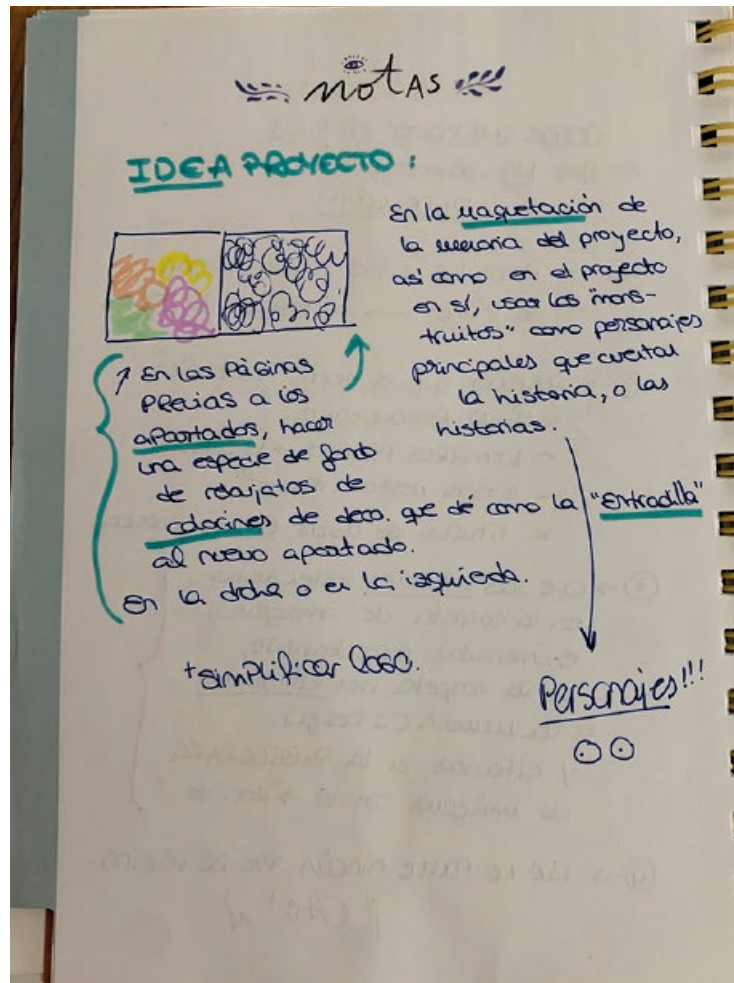 notas
IDEA PROYECTO:
En la maquetación de
la memoria del proyecto,
así como en el proyecto
en sí, usar los "mons-
truitos" como personajes
principales que cuentan
la historia, o las
historias.
En las páginas
previas a los
apartados, hacer
una especie de fondo
de retajatos de
colorines de deco. que dé como la "entradilla"
al nuevo apartado.
En la dcha o en la izquierda.
+simplificar
Personajes!!!